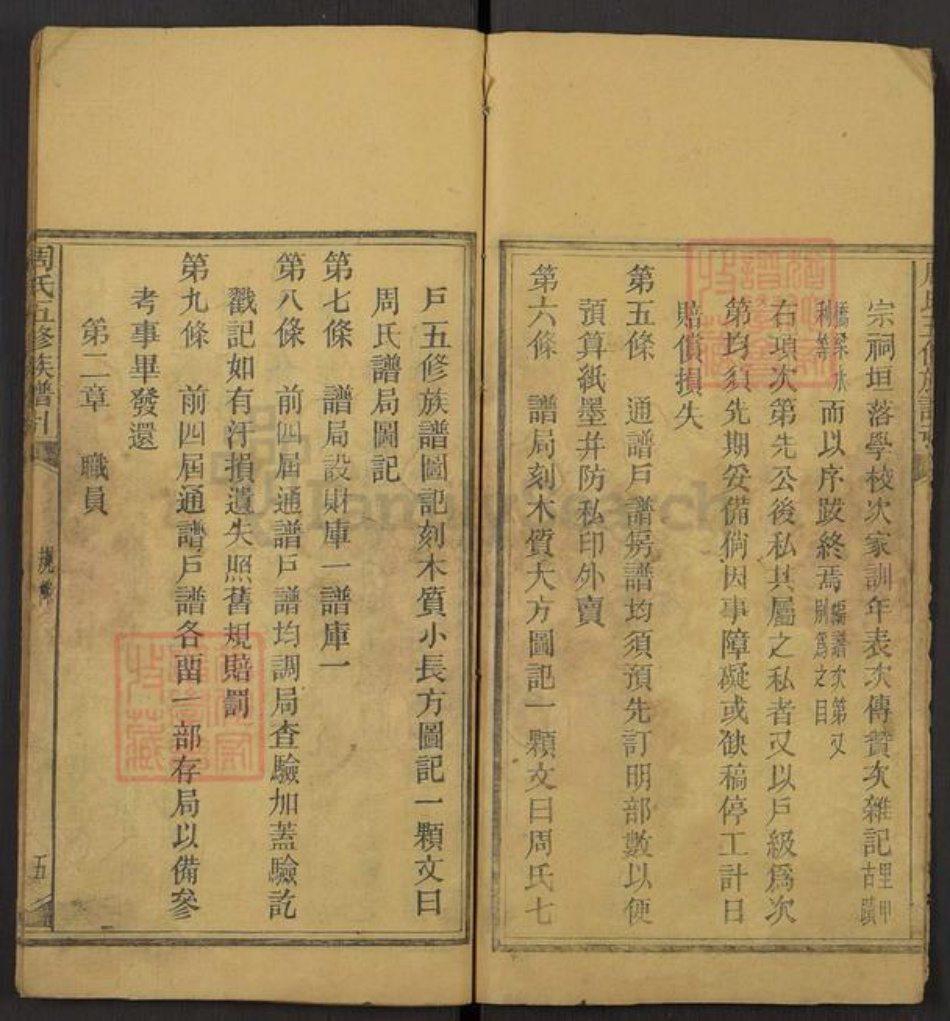 宗祠垣落學校次家訓年表次傳贊次雜記里甲古蹟
橋梁水利等而以序跋終焉編譜次第又別爲之目
右項次第先公後私其屬之私者又以戶級爲次
第均須先期妥備倘因事障礙或缺稿停工計日
賠償損失
第五條 通譜戶譜房譜均須預先訂明部數以便
預算紙墨幷防私印外賣
第六條 譜局刻木質大方圖記一顆文曰周氏七
戶五修族譜圖記刻木質小長方圖記一顆文曰
周氏譜局圖記
第七條 譜局設財庫一譜庫一
第八條 前四屆通譜戶譜均調局查驗加蓋驗訖
戳記如有汙損遺失照舊規賠罰
第九條 前四屆通譜戶譜各畱一部存局以備參
考事畢發還
第二章 職員
周氏五修族譜
五